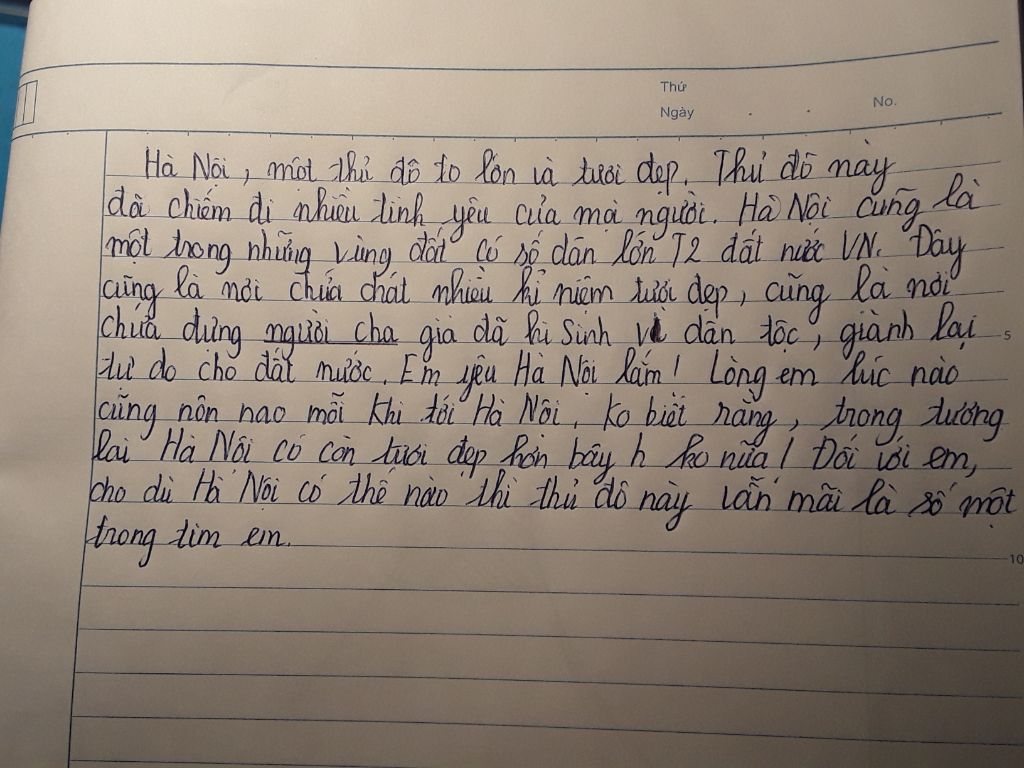 Thứ
Ngày
No.
Hà Nội, một thủ đô to lớn và tươi đẹp. Thủ đô này
đã chiếm đi nhiều tình yêu của mọi người. Hà Nội cũng là
một trong những vùng đất có số dân lớn T2 đất nước VN. Đây
cũng là nơi chứa chất nhiều kỉ niệm tươi đẹp, cũng là nơi
chứa đựng người cha già đã hi sinh vì dân tộc, giành lại
5
tự do cho đất nước. Em yêu Hà Nội lắm! Lòng em lúc nào
cũng nôn nao mỗi khi tới Hà Nội. Ko biết rằng, trong tương
lai Hà Nội có còn tươi đẹp hơn bây h ko nữa! Đối với em,
cho dù Hà Nội có thế nào thì thủ đô này vẫn mãi là số một
trong tim em.
10